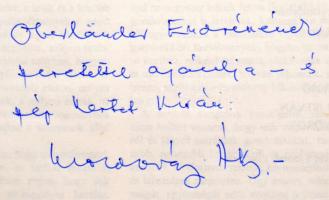 Oberländer Endrénének
szeretettel ajánlja – és
szép kertet kíván: